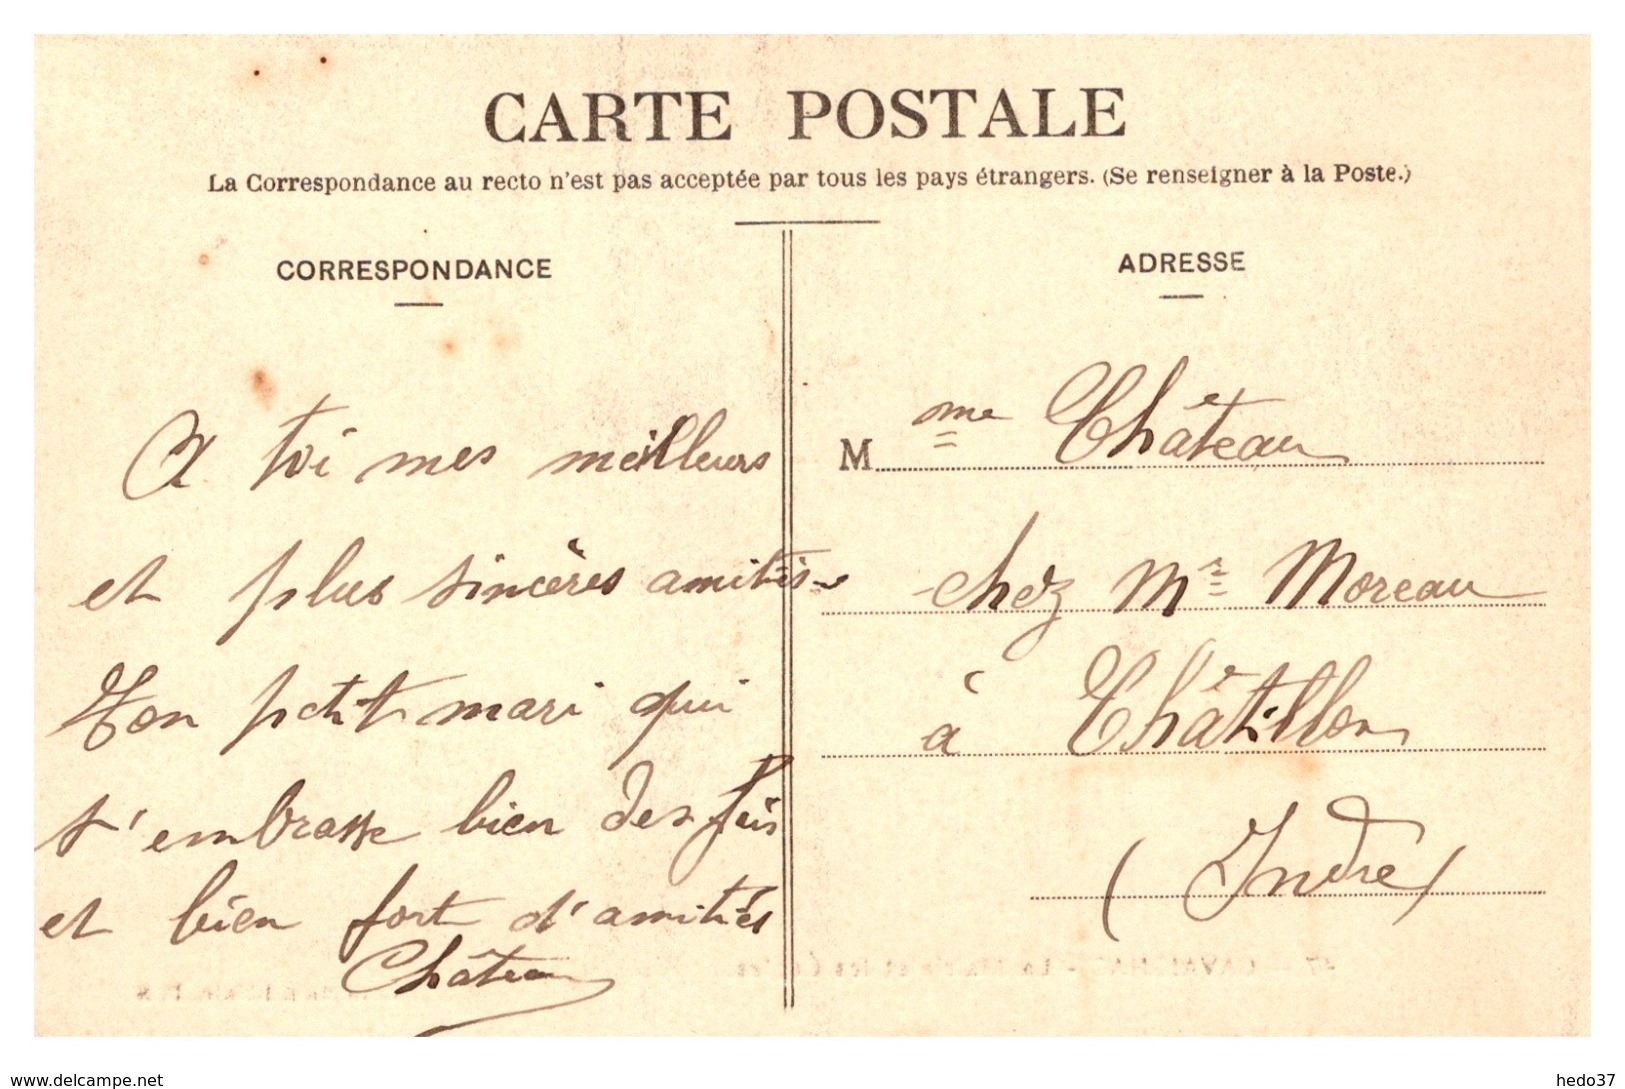 CARTE POSTALE
La Correspondance au recto n'est pas acceptée par tous les pays étrangers. (Se renseigner à la Poste.)
CORRESPONDANCE
A toi mes meilleurs
et plus sincères amitiés
Ton petit mari qui
t'embrasse bien des fois
et bien fort d'amitiés
Château
ADRESSE
Mme Château
chez Mr Moreau
à Châtillon
(Indre)
www.delcampe.net
hedo37